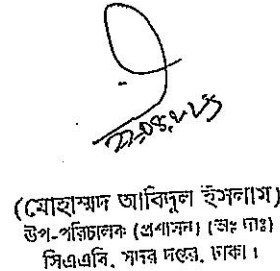 (মোহাম্মদ আবিদুল ইসলাম)
উপ-পরিচালক (প্রশাসন) (ভাঃ দাঃ)
সিএএবি, সদর দপ্তর, ঢাকা।